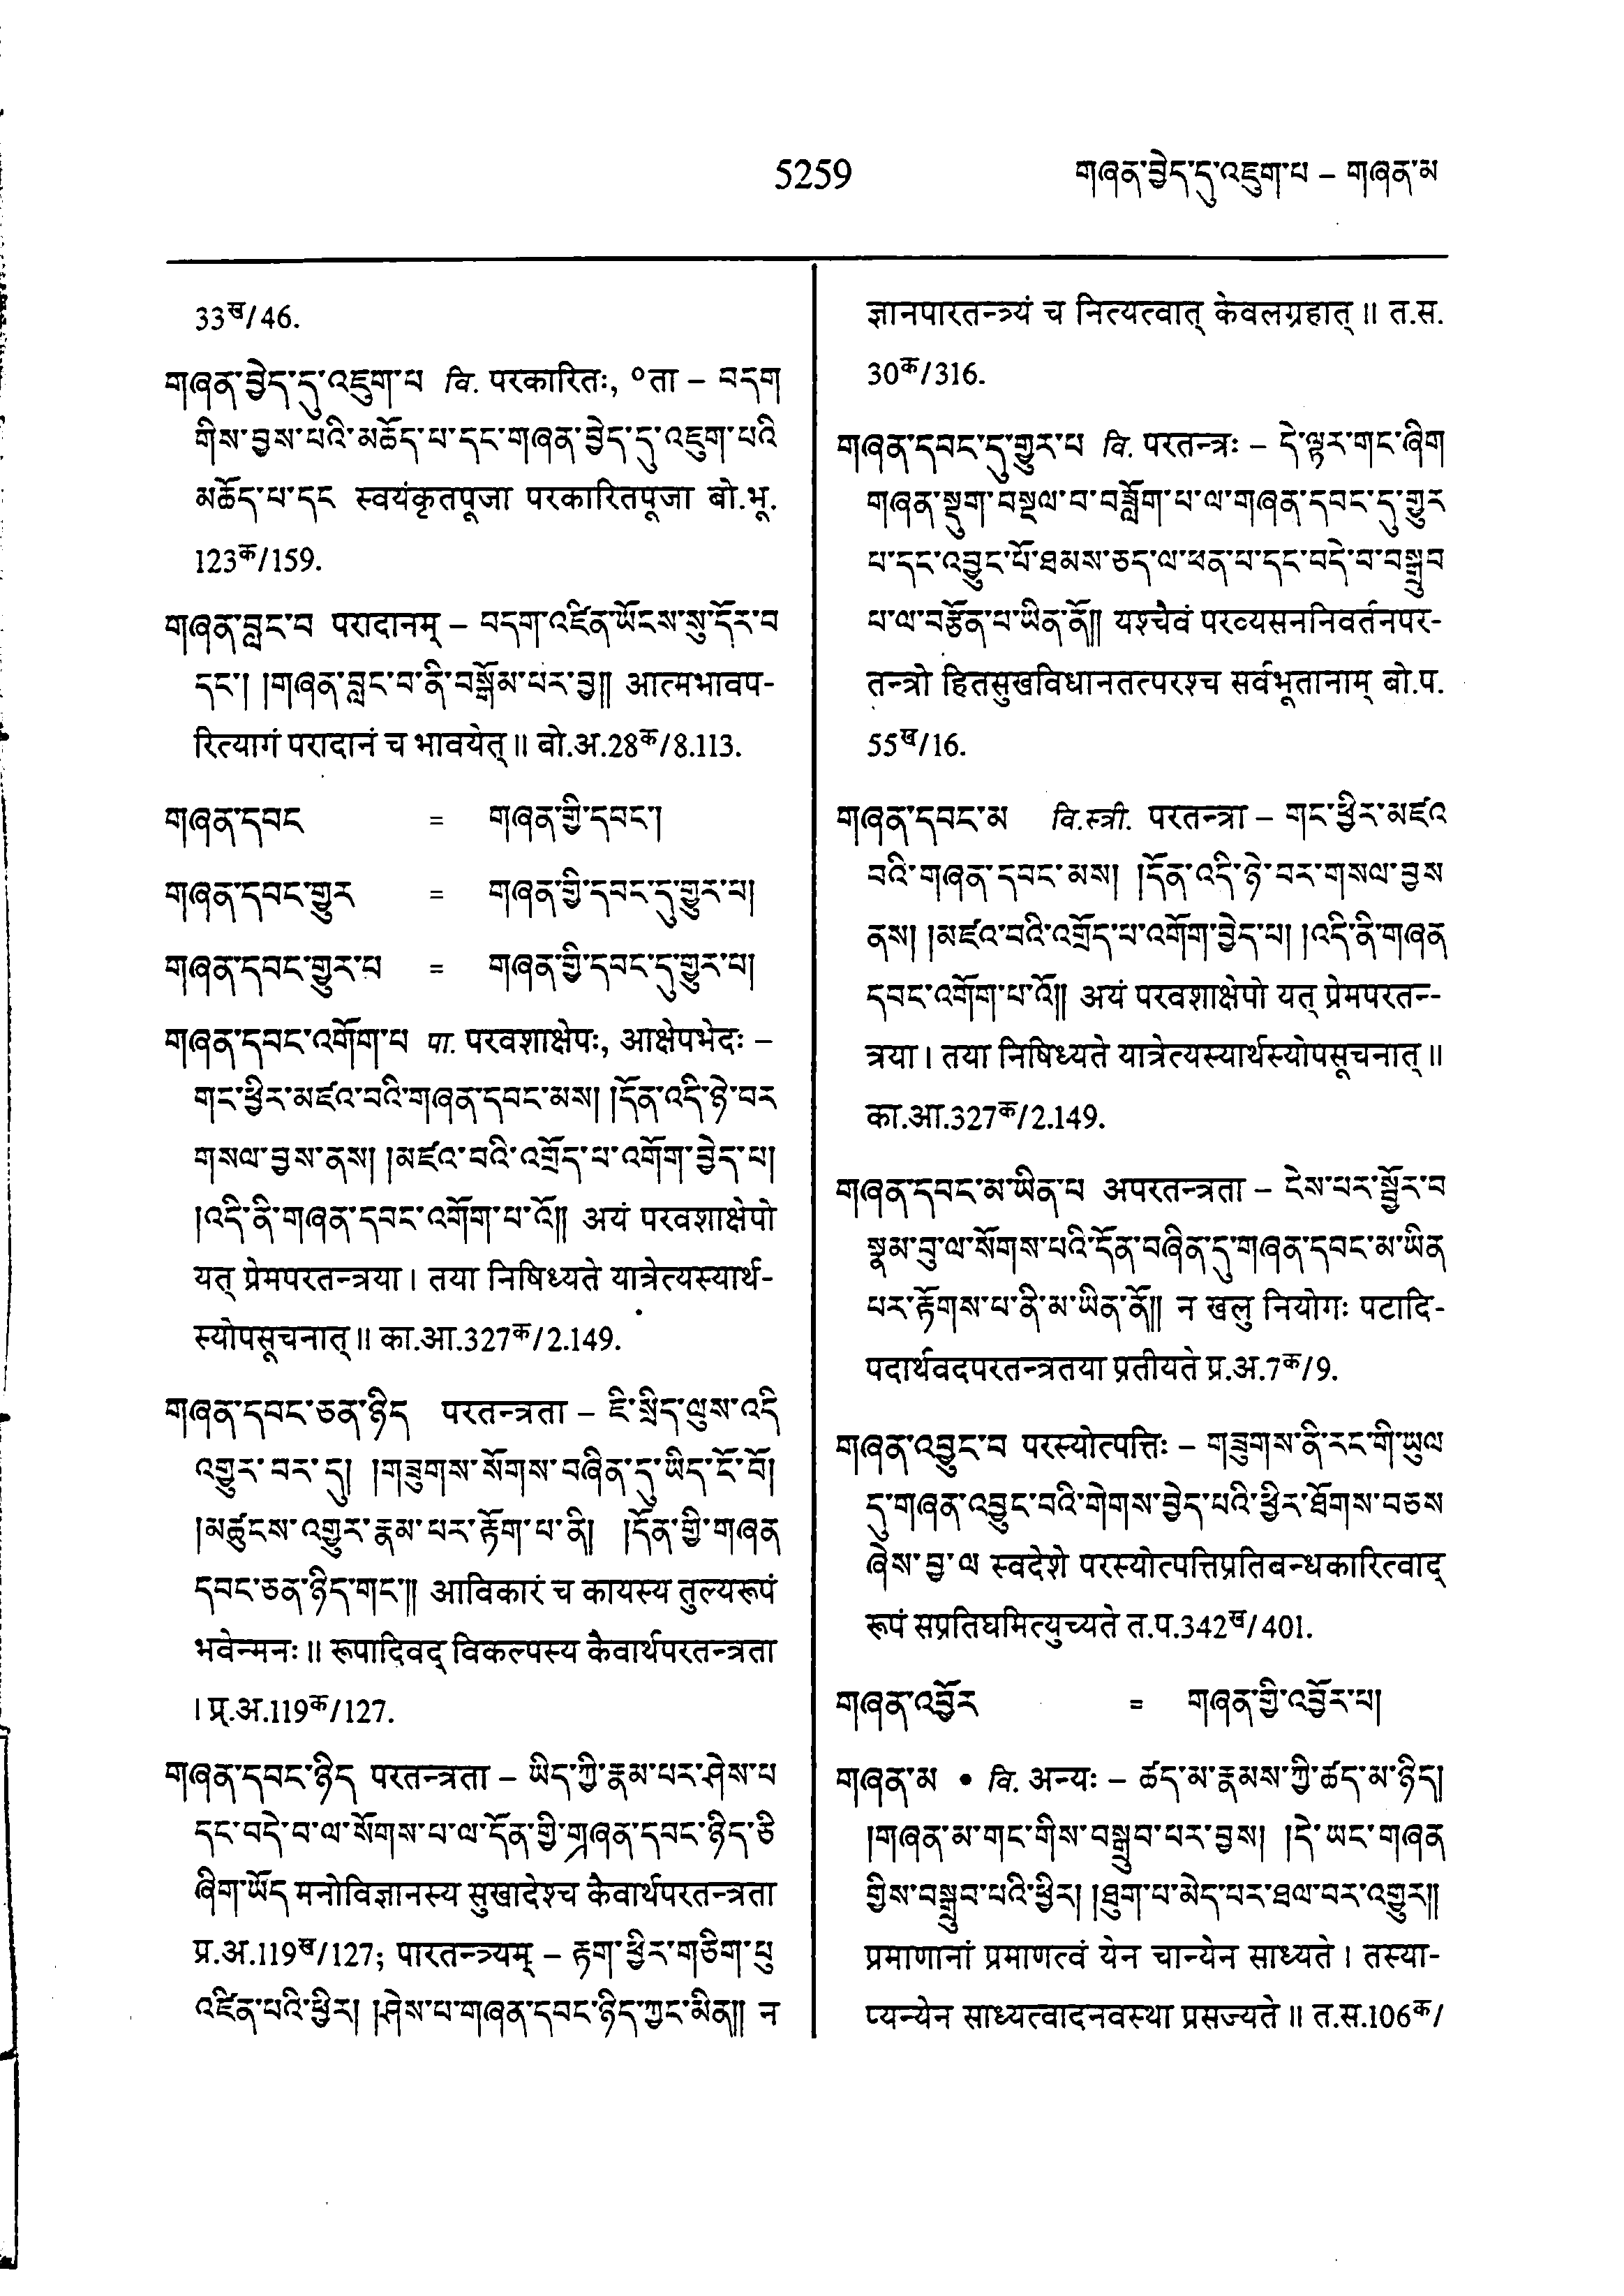 5259
གཞན་བྱེད་དུ་འཇུག་པ – གཞན་མ
33ख/46.
གཞན་བྱེད་དུ་འཇུག་པ वि. परकारितः, ०ता – བདག
གིས་བྱས་པའི་མཆོད་པ་དང་གཞན་བྱེད་དུ་འཇུག་པའི
མཆོད་པ་དང स्वयंकृतपूजा परकारितपूजा बो.भू.
123क/159.
གཞན་བླང་བ परादानम् – བདག་འཛིན་ཡོངས་སུ་དོར་བ
དང་། །གཞན་བླང་བ་ནི་བསྒོམ་པར་བྱ།། आत्मभावप-
रित्यागं परादानं च भावयेत्॥ बो.अ.28क/8.113.
གཞན་དབང = གཞན་གྱི་དབང་།
གཞན་དབང་གྱུར = གཞན་གྱི་དབང་དུ་གྱུར་པ།
གཞན་དབང་གྱུར་པ = གཞན་གྱི་དབང་དུ་གྱུར་པ།
གཞན་དབང་འགོག་པ पा. परवशाक्षेपः, आक्षेपभेदः –
གང་ཕྱིར་མཛའ་བའི་གཞན་དབང་མས། །དོན་འདི་ཉེ་བར
གསལ་བྱས་ནས། །མཛའ་བའི་འགྲོད་པ་འགོག་བྱེད་པ།
།འདི་ནི་གཞན་དབང་འགོག་པ་འོ།། अयं परवशाक्षेपो
यत् प्रेमपरतन्त्रया। तया निषिध्यते यात्रेत्यस्यार्थ-
स्योपसूचनात्॥ का.आ.327क/2.149.
གཞན་དབང་ཅན་ཉིད परतन्त्रता – ཇི་སྲིད་ལུས་འདི
འགྱུར་བར་དུ། །གཟུགས་སོགས་བཞིན་དུ་ཡིད་ངོ་བོ།
།མཚུངས་འགྱུར་རྣམ་པར་རྟོག་པ་ནི། །དོན་གྱི་གཞན
དབང་ཅན་ཉིད་གང་།། आविकारं च कायस्य तुल्यरूपं
भवेन्मनः॥ रूपादिवद् विकल्पस्य कैवार्थपरतन्त्रता
। प्र.अ.119क/127.
གཞན་དབང་ཉིད परतन्त्रता – ཡིད་ཀྱི་རྣམ་པར་ཤེས་པ
དང་བདེ་བ་ལ་སོགས་པ་ལ་དོན་གྱི་གཞན་དབང་ཉིད་ཅི
ཞིག་ཡོད मनोविज्ञानस्य सुखादेश्च कैवार्थपरतन्त्रता
प्र.अ.119ख/127; पारतन्त्र्यम् – རྟག་ཕྱིར་གཅིག་པུ
འཛིན་པའི་ཕྱིར། །ཤེས་པ་གཞན་དབང་ཉིད་ཀྱང་མིན།། न
ज्ञानपारतन्त्र्यं च नित्यत्वात् केवलग्रहात्॥ त.स.
30क/316.
གཞན་དབང་དུ་གྱུར་པ वि. परतन्त्रः – དེ་ལྟར་གང་ཞིག
གཞན་སྡུག་བསྔལ་བ་བཟློག་པ་ལ་གཞན་དབང་དུ་གྱུར
པ་དང་འབྱུང་པོ་ཐམས་ཅད་ལ་ཕན་པ་དང་བདེ་བ་བསྒྲུབ
པ་ལ་བརྩོན་པ་ཡིན་ནོ།། यश्चैवं परव्यसननिवर्तनपर-
तन्त्रो हितसुखविधानतत्परश्च सर्वभूतानाम् बो.प.
55ख/16.
གཞན་དབང་མ वि.स्त्री. परतन्त्रा – གང་ཕྱིར་མཛའ
བའི་གཞན་དབང་མས། །དོན་འདི་ཉེ་བར་གསལ་བྱས
ནས། །མཛའ་བའི་འགྲོད་པ་འགོག་བྱེད་པ། །འདི་ནི་གཞན
དབང་འགོག་པ་འོ།། अयं परवशाक्षेपो यत् प्रेमपरतन्-
त्रया। तया निषिध्यते यात्रेत्यस्यार्थस्योपसूचनात्॥
का.आ.327क/2.149.
གཞན་དབང་མ་ཡིན་པ अपरतन्त्रता – ངེས་པར་སྦྱོར་བ
སྣམ་བུ་ལ་སོགས་པའི་དོན་བཞིན་དུ་གཞན་དབང་མ་ཡིན
པར་རྟོགས་པ་ནི་མ་ཡིན་ནོ།། न खलु नियोगः पटादि-
पदार्थवदपरतन्त्रतया प्रतीयते प्र.अ.7क/9.
གཞན་འབྱུང་བ परस्योत्पत्तिः – གཟུགས་ནི་རང་གི་ཡུལ
དུ་གཞན་འབྱུང་བའི་གེགས་བྱེད་པའི་ཕྱིར་ཐོགས་བཅས
ཞེས་བྱ་ལ स्वदेशे परस्योत्पत्तिप्रतिबन्धकारित्वाद्
रूपं सप्रतिघमित्युच्यते त.प.342ख/401.
གཞན་འབྱོར = གཞན་གྱི་འབྱོར་པ།
གཞན་མ • वि. अन्यः – ཚད་མ་རྣམས་ཀྱི་ཚད་མ་ཉིད།
།གཞན་མ་གང་གིས་བསྒྲུབ་པར་བྱས། །དེ་ཡང་གཞན
གྱིས་བསྒྲུབ་པའི་ཕྱིར། །ཐུག་པ་མེད་པར་ཐལ་བར་འགྱུར།།
प्रमाणानां प्रमाणत्वं येन चान्येन साध्यते। तस्या-
प्यन्येन साध्यत्वादनवस्था प्रसज्यते॥ त.स.106क/